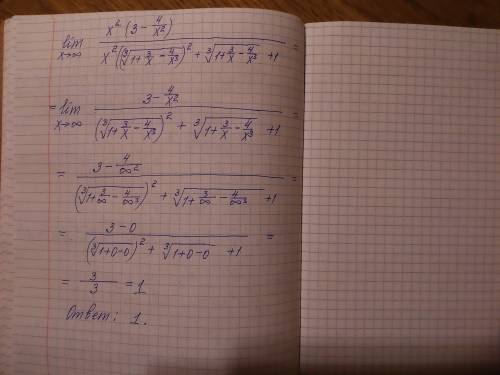 lim x→∞ x²(3 - 4/x²) / x²((∛(1+3/x-4/x³))² + ∛(1+3/x-4/x³) + 1) =
= lim x→∞ (3 - 4/x²) / ((∛(1+3/x-4/x³))² + ∛(1+3/x-4/x³) + 1) =
= (3 - 4/∞²) / ((∛(1+3/∞-4/∞³))² + ∛(1+3/∞-4/∞³) + 1) =
= (3-0) / ((∛(1+0-0))² + ∛(1+0-0) + 1) =
= 3/3 = 1
Ответ: 1.